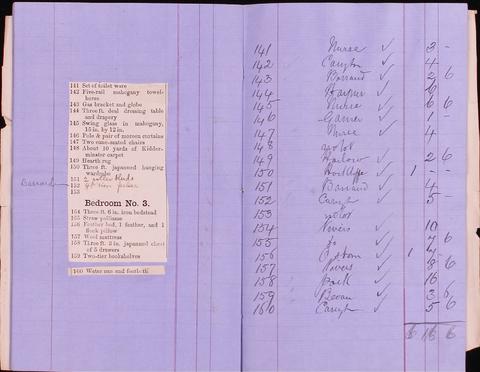 141 Set of toilet ware
142 Five-rail mahogany towel-
horse
143 Gas bracket and globe
144 Three ft. deal dressing table
and drapery
145 Swing glass in mahogany,
15 in. by 12 in.
146 Pole & pair of moreen curtains
147 Two cane-seated chairs
148 About 10 yards of Kidder-
minster carpet
149 Hearth rug
150 Three ft. japanned hanging
wardrobe
151 2 roller blinds
152
153
Barraud
Bedroom No. 3.
154 Three ft. 6 in. iron bedstead
155 Straw palliasse
156 Feather bed, 1 feather, and 1
flock pillow
157 Wool mattress
158 Three ft. 3 in. japanned chest
of 5 drawers
159 Two-tier bookshelves
160 Water can and footbath
141 Nurse 3 -
142 4 -
143 Barraud 2 6
144 6
145 Nurse 6 6
146 1 -
147 Nurse 4
148 no lot
149 Harlow 2 6
150 1 - -
151 Barraud 4
152 5 -
153 no lot
154 Rivers 10
155 Do 7 6
156 1
157 Rivers 8 6
158 16
159 Bevan 3 6
160 5 6
6 16 6